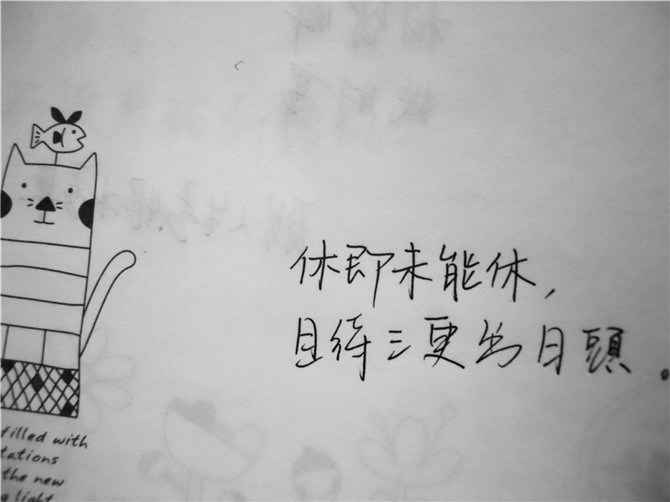 休即未能休，
且待三更出日頭。
filled with
tations
the new
g light